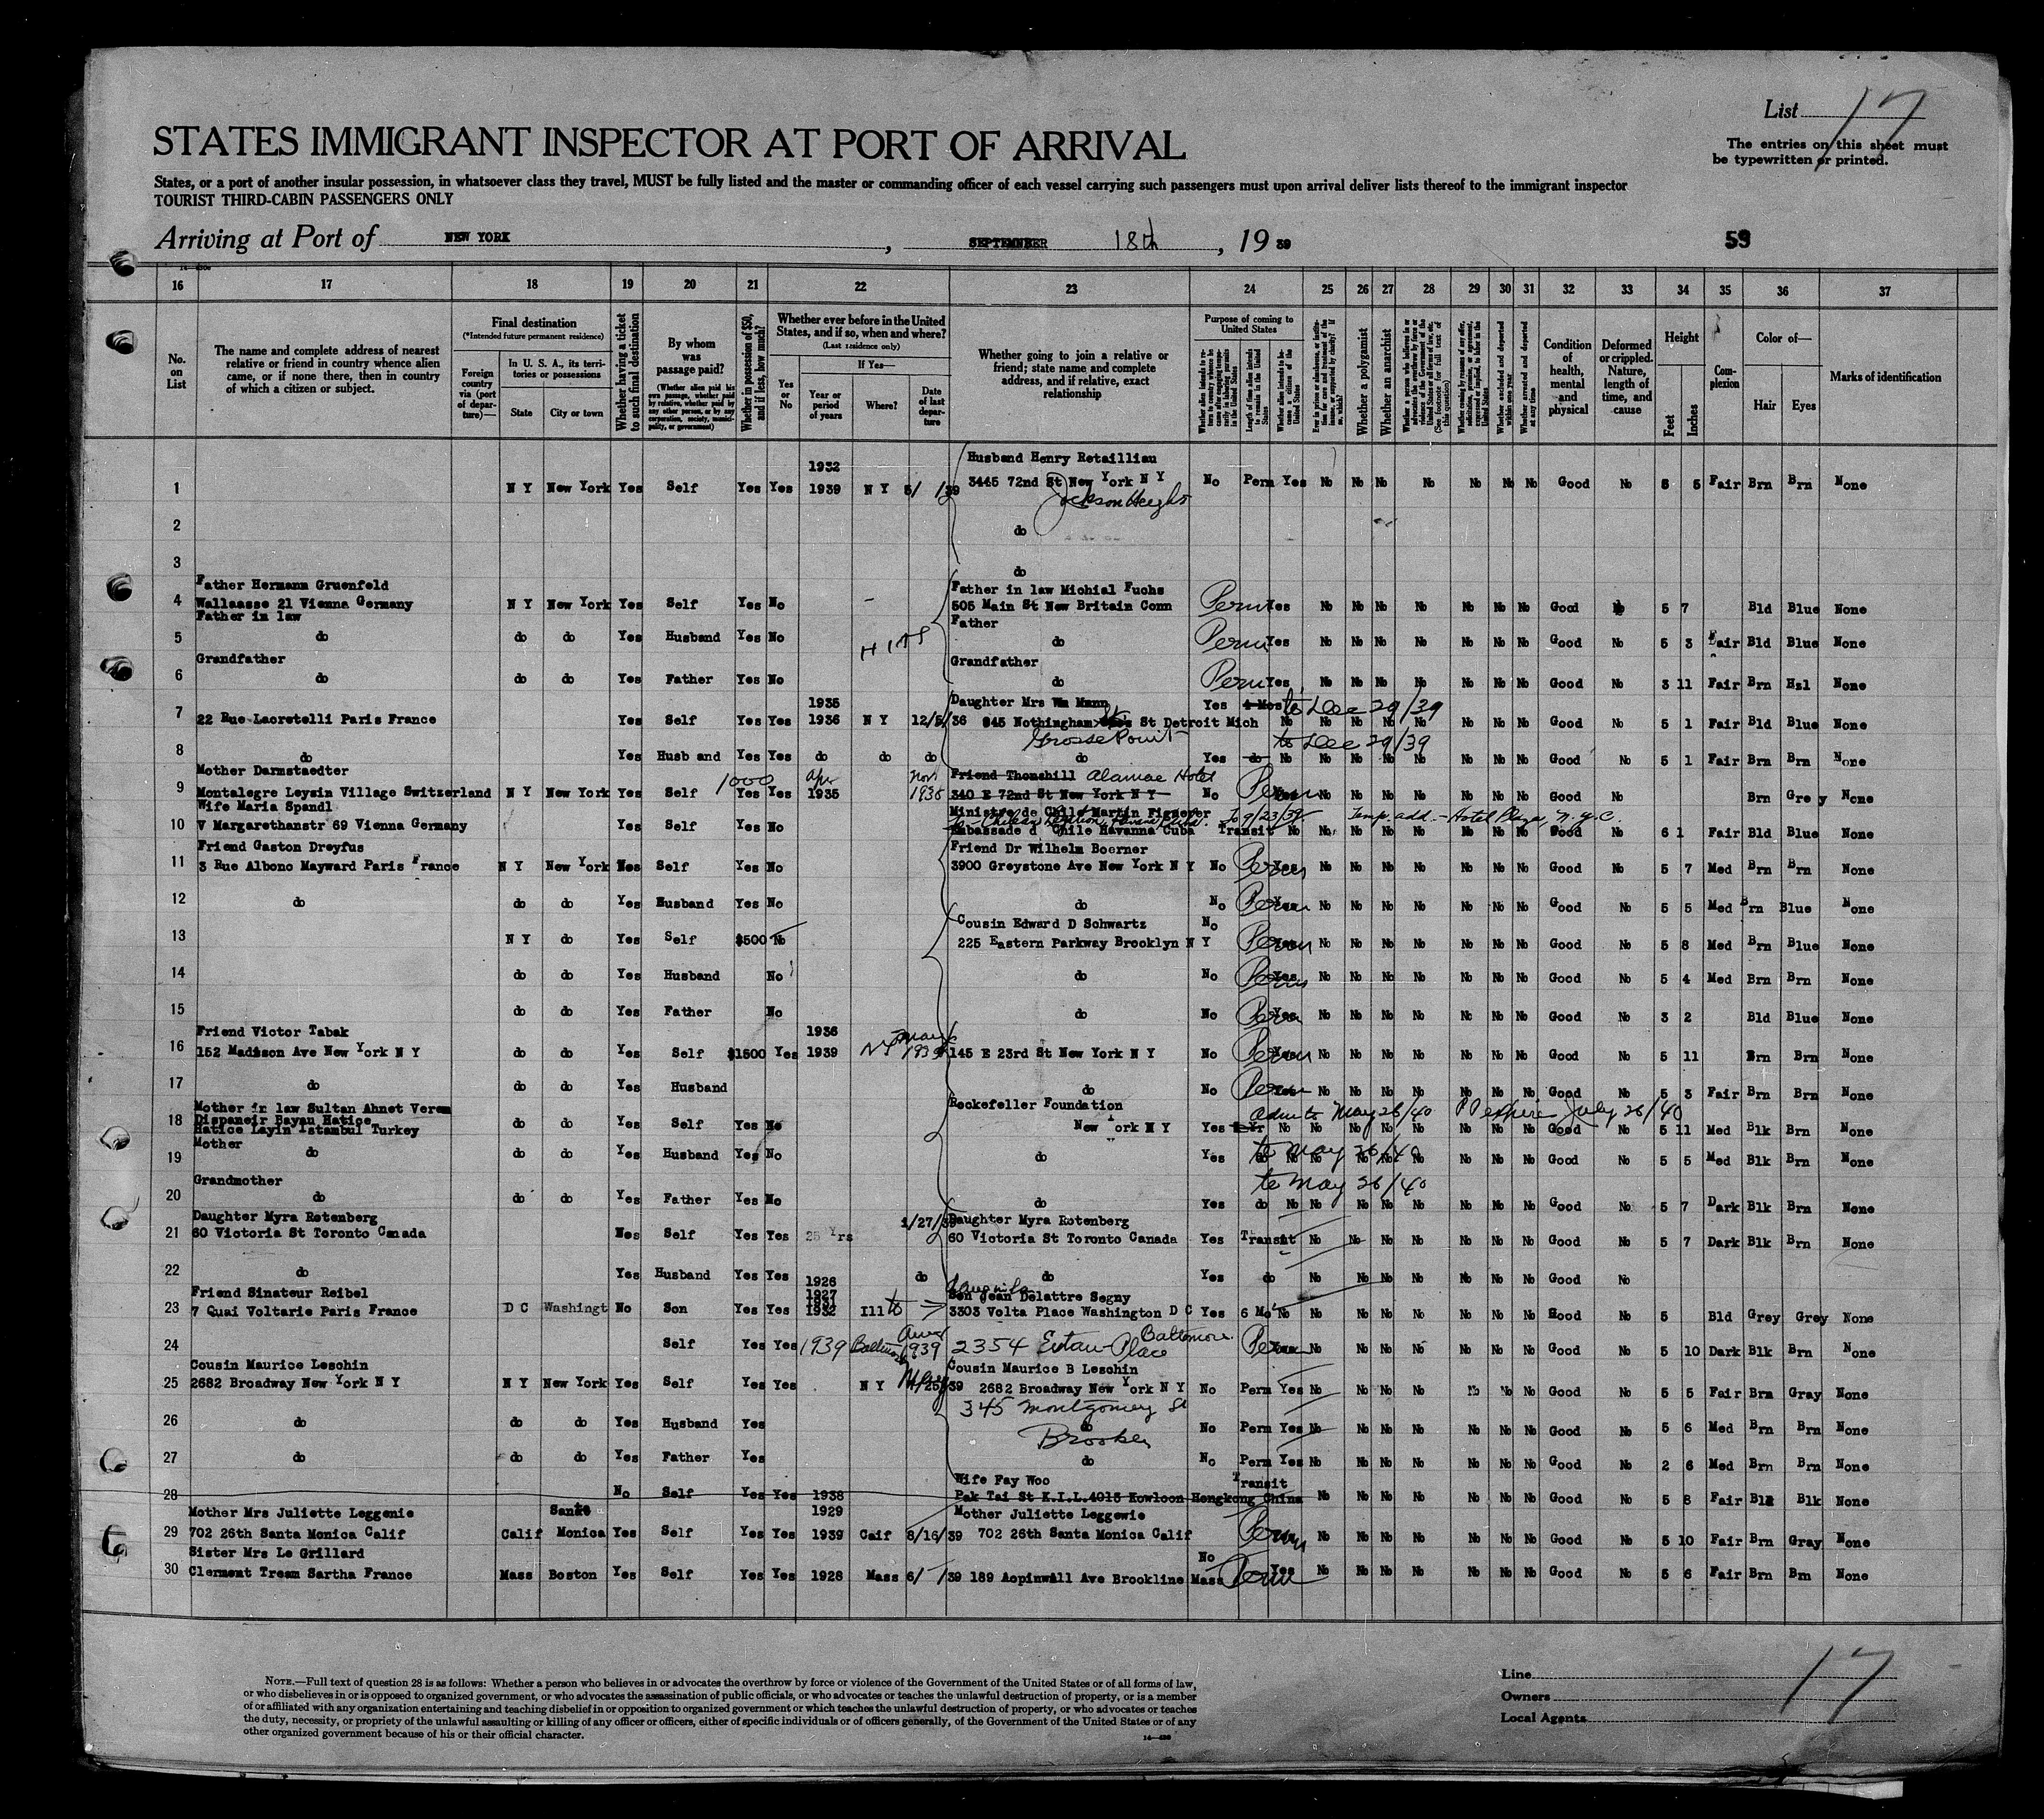 List 17
STATES IMMIGRANT INSPECTOR AT PORT OF ARRIVAL
The entries on this sheet must
be typewritten or printed.
States, or a port of another insular possession, in whatsoever class they travel, MUST be fully listed and the master or commanding officer of each vessel carrying such passengers must upon arrival deliver lists thereof to the immigrant inspector
TOURIST THIRD-CABIN PASSENGERS ONLY
Arriving at Port of NEW YORK, SEPTEMBER 18th, 19 39
59
16 17 18 19 20 21 22 23 24 25 26 27 28 29 30 31 32 33 34 35 36 37
No. on List
The name and complete address of nearest relative or friend in country whence alien came, or if none there, then in country of which a citizen or subject.
Final destination
(*Intended future permanent residence)
Foreign country via (port of departure)—
In U. S. A., its territories or possessions
State
City or town
Whether having a ticket to such final destination
By whom was passage paid?
(Whether alien paid his own passage, whether paid by relative, whether paid by any other person, or by any corporation, society, municipality, or government)
Whether in possession of $50, and if less, how much?
Whether ever before in the United States, and if so, when and where?
(Last residence only)
Yes or No
If Yes—
Year or period of years
Where?
Date of last departure
Whether going to join a relative or friend; state name and complete address, and if relative, exact relationship
Purpose of coming to United States
Length of time alien intends to remain in the United States
Whether alien intends to become a citizen of the United States
Whether a polygamist
Whether an anarchist
(See footnote for full text of this question)
Whether excluded and deported within one year
Whether arrested and deported at any time
Condition of health, mental and physical
Deformed or crippled. Nature, length of time, and cause
Height
Feet
Inches
Complexion
Color of—
Hair
Eyes
Marks of identification
1932 Husband Henry Retailliau
1 N Y New York Yes Self Yes Yes 1939 N Y 5/ /39 3445 72nd St New York N Y No Perm Yes No No No No No No No Good No 5 5 Fair Brn Brn None
Jackson Heights
2 do
3 do
Father Hermann Gruenfeld Father in law Michial Fuchs
4 Wallaasse 21 Vienna Germany N Y New York Yes Self Yes No 505 Main St New Britain Conn Perm Yes No No No No No No No Good No 5 7 Bld Blue None
Father in law Father
5 do do do Yes Husband Yes No do Perm Yes No No No No No No No Good No 5 3 Fair Bld Blue None
Grandfather Grandfather
6 do do do Yes Father Yes No do Perm Yes No No No No No No No Good No 3 11 Fair Brn Hzl None
1935 Daughter Mrs Wm Mann to Dec 29/39
7 22 Rue Lacretelli Paris France Yes Self Yes Yes 1936 N Y 12/5/36 845 Nothingham St Detroit Mich Yes No No No No No No No No Good No 5 1 Fair Bld Blue None
Grosse Point to Dec 29/39
8 do Yes Husband Yes Yes do do do do Yes do No No No No No No No No Good No 5 1 Fair Brn Brn None
Mother Darmstaedter 1000 Apr Nov Friend Thomshill Alamac Hotel
9 Montalegre Leysin Village Switzerland N Y New York Yes Self Yes Yes 1935 1935 340 E 72nd St New York N Y No Perm Yes No No No No No No No Good No Brn Grey None
Wife Maria Spandl Ministre de Chile Martin Figueror
10 V Margarethanstr 69 Vienna Germany Yes Self Yes No Embassade d Chile Havanna Cuba Transit To 9/23/39 Temp. add. - Hotel Plaza, N.Y.C. No No No No No No No Good No 6 1 Fair Bld Blue None
Friend Gaston Dreyfus Friend Dr Wilhelm Boerner
11 3 Rue Albono Mayward Paris France N Y New York Self Yes No 3900 Greystone Ave New York N Y No Perm Yes No No No No No No No Good No 5 7 Med Brn Brn None
12 do do do Yes Husband Yes No do No Perm Yes No No No No No No No Good No 5 5 Med Brn Blue None
Cousin Edward D Schwartz No
13 N Y do Yes Self $500 No 225 Eastern Parkway Brooklyn N Y Perm No No No No No No No Good No 5 8 Med Brn Blue None
14 do do Yes Husband No do No Perm Yes No No No No No No No Good No 5 4 Med Brn Brn None
15 do do Yes Father No do No Perm Yes No No No No No No No Good No 3 2 Bld Blue None
Friend Victor Tabak 1936 May
16 152 Madison Ave New York N Y do do Yes Self $1500 Yes 1939 NY 1939 145 E 23rd St New York N Y No Perm Yes No No No No No No No Good No 5 11 Brn Brn None
17 do do do Yes Husband do No Perm Yes No No No No No No No Good No 5 3 Fair Brn Brn None
Mother in law Sultan Ahnet Verem Rockefeller Foundation Adm to May 26/40 PP expires July 26/40
18 Dispaneir Bayan Hatice do do Yes Self Yes No New York N Y Yes No No No No No No No No Good No 5 11 Med Blk Brn None
Hatice Layin Istambul Turkey
Mother to May 26/40
19 do do do Yes Husband Yes No do Yes do No No No No No No No No Good No 5 5 Med Blk Brn None
Grandmother to May 26/40
20 do do do Yes Father Yes No do Yes do No No No No No No No No Good No 5 7 Dark Blk Brn None
Daughter Myra Rotenberg 1/27/39 Daughter Myra Rotenberg
21 60 Victoria St Toronto Canada Self Yes Yes 25 Yrs 60 Victoria St Toronto Canada Yes Transit No No No No No No No Good No 5 7 Dark Blk Brn None
22 do Yes Husband Yes Yes do do Yes do No No No No No No No Good No
Friend Sinateur Reibel 1926 1927 1931 Son Jean Delattre Segny
23 7 Quai Voltarie Paris France D C Washingt No Son Yes Yes 1932 Ill 3303 Volta Place Washington D C Yes 6 Mo No No No No No No No No Good No 5 Bld Grey Grey None
24 Self Yes Yes 1939 Baltimore 1939 2354 Eutaw Place Baltimore Perm No No No No No No No Good No 5 10 Dark Blk Brn None
Cousin Maurice Leschin Cousin Maurice B Leschin
25 2682 Broadway New York N Y N Y New York Yes Self Yes Yes N Y 2682 Broadway New York N Y No Perm Yes No No No No No No No Good No 5 5 Fair Brn Gray None
345 Montgomery St
26 do do do Yes Husband Yes do No Perm Yes No No No No No No No Good No 5 6 Med Brn Brn None
27 do do do Yes Father Yes do No Perm Yes No No No No No No No Good No 2 6 Med Brn Brn None
Wife Fay Woo Transit
28 No Self Yes Yes 1938 Pak Tai St K.I.L.4015 Kowloon Hongkong China No No No No No No No Good No 5 8 Fair Blk Blk None
Mother Mrs Juliette Leggenie Santa 1929 Mother Juliette Leggewie
29 702 26th Santa Monica Calif Calif Monica Yes Self Yes Yes 1939 Caif 8/16/39 702 26th Santa Monica Calif Perm No No No No No No No Good No 5 10 Fair Brn Gray None
Sister Mrs Le Grillard No
30 Clermont Tream Sartha France Mass Boston Yes Self Yes Yes 1928 Mass 6/ /39 189 Aopinwall Ave Brookline Mass Perm Yes No No No No No No No Good No 5 6 Fair Brn Brn None
NOTE.—Full text of question 28 is as follows: Whether a person who believes in or advocates the overthrow by force or violence of the Government of the United States or of all forms of law,
or who disbelieves in or is opposed to organized government, or who advocates the assassination of public officials, or who advocates or teaches the unlawful destruction of property, or is a member
of or affiliated with any organization entertaining and teaching disbelief in or opposition to organized government or which teaches the unlawful destruction of property, or who advocates or teaches
the duty, necessity, or propriety of the unlawful assaulting or killing of any officer or officers, either of specific individuals or of officers generally, of the Government of the United States or of any
other organized government because of his or their official character.
Line
Owners
Local Agents
17